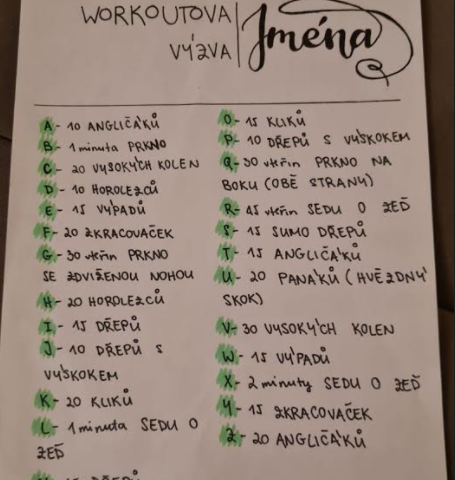 WORKOUTOVA
VÝZVA
Jména
A - 10 ANGLIČÁKŮ
B - 1 minuta PRKNO
C - 20 VYSOKÝCH KOLEN
D - 10 HOROLEZCŮ
E - 15 VÝPADŮ
F - 20 ZKRACOVAČEK
G - 30 vteřin PRKNO
SE ZDVIŽENOU NOHOU
H - 20 HOROLEZCŮ
I - 15 DŘEPŮ
J - 10 DŘEPŮ S
VÝSKOKEM
K - 20 KLIKŮ
L - 1 minuta SEDU O
ZEĎ
O - 15 KLIKŮ
P - 10 DŘEPŮ S VÝSKOKEM
Q - 30 vteřin PRKNO NA
BOKU (OBĚ STRANY)
R - 45 vteřin SEDU O ZEĎ
S - 15 SUMO DŘEPŮ
T - 15 ANGLIČÁKŮ
U - 20 PANÁKŮ (HVĚZDNÝ
SKOK)
V - 30 VYSOKÝCH KOLEN
W - 15 VÝPADŮ
X - 2 minuty SEDU O ZEĎ
Y - 15 ZKRACOVAČEK
Z - 20 ANGLIČÁKŮ